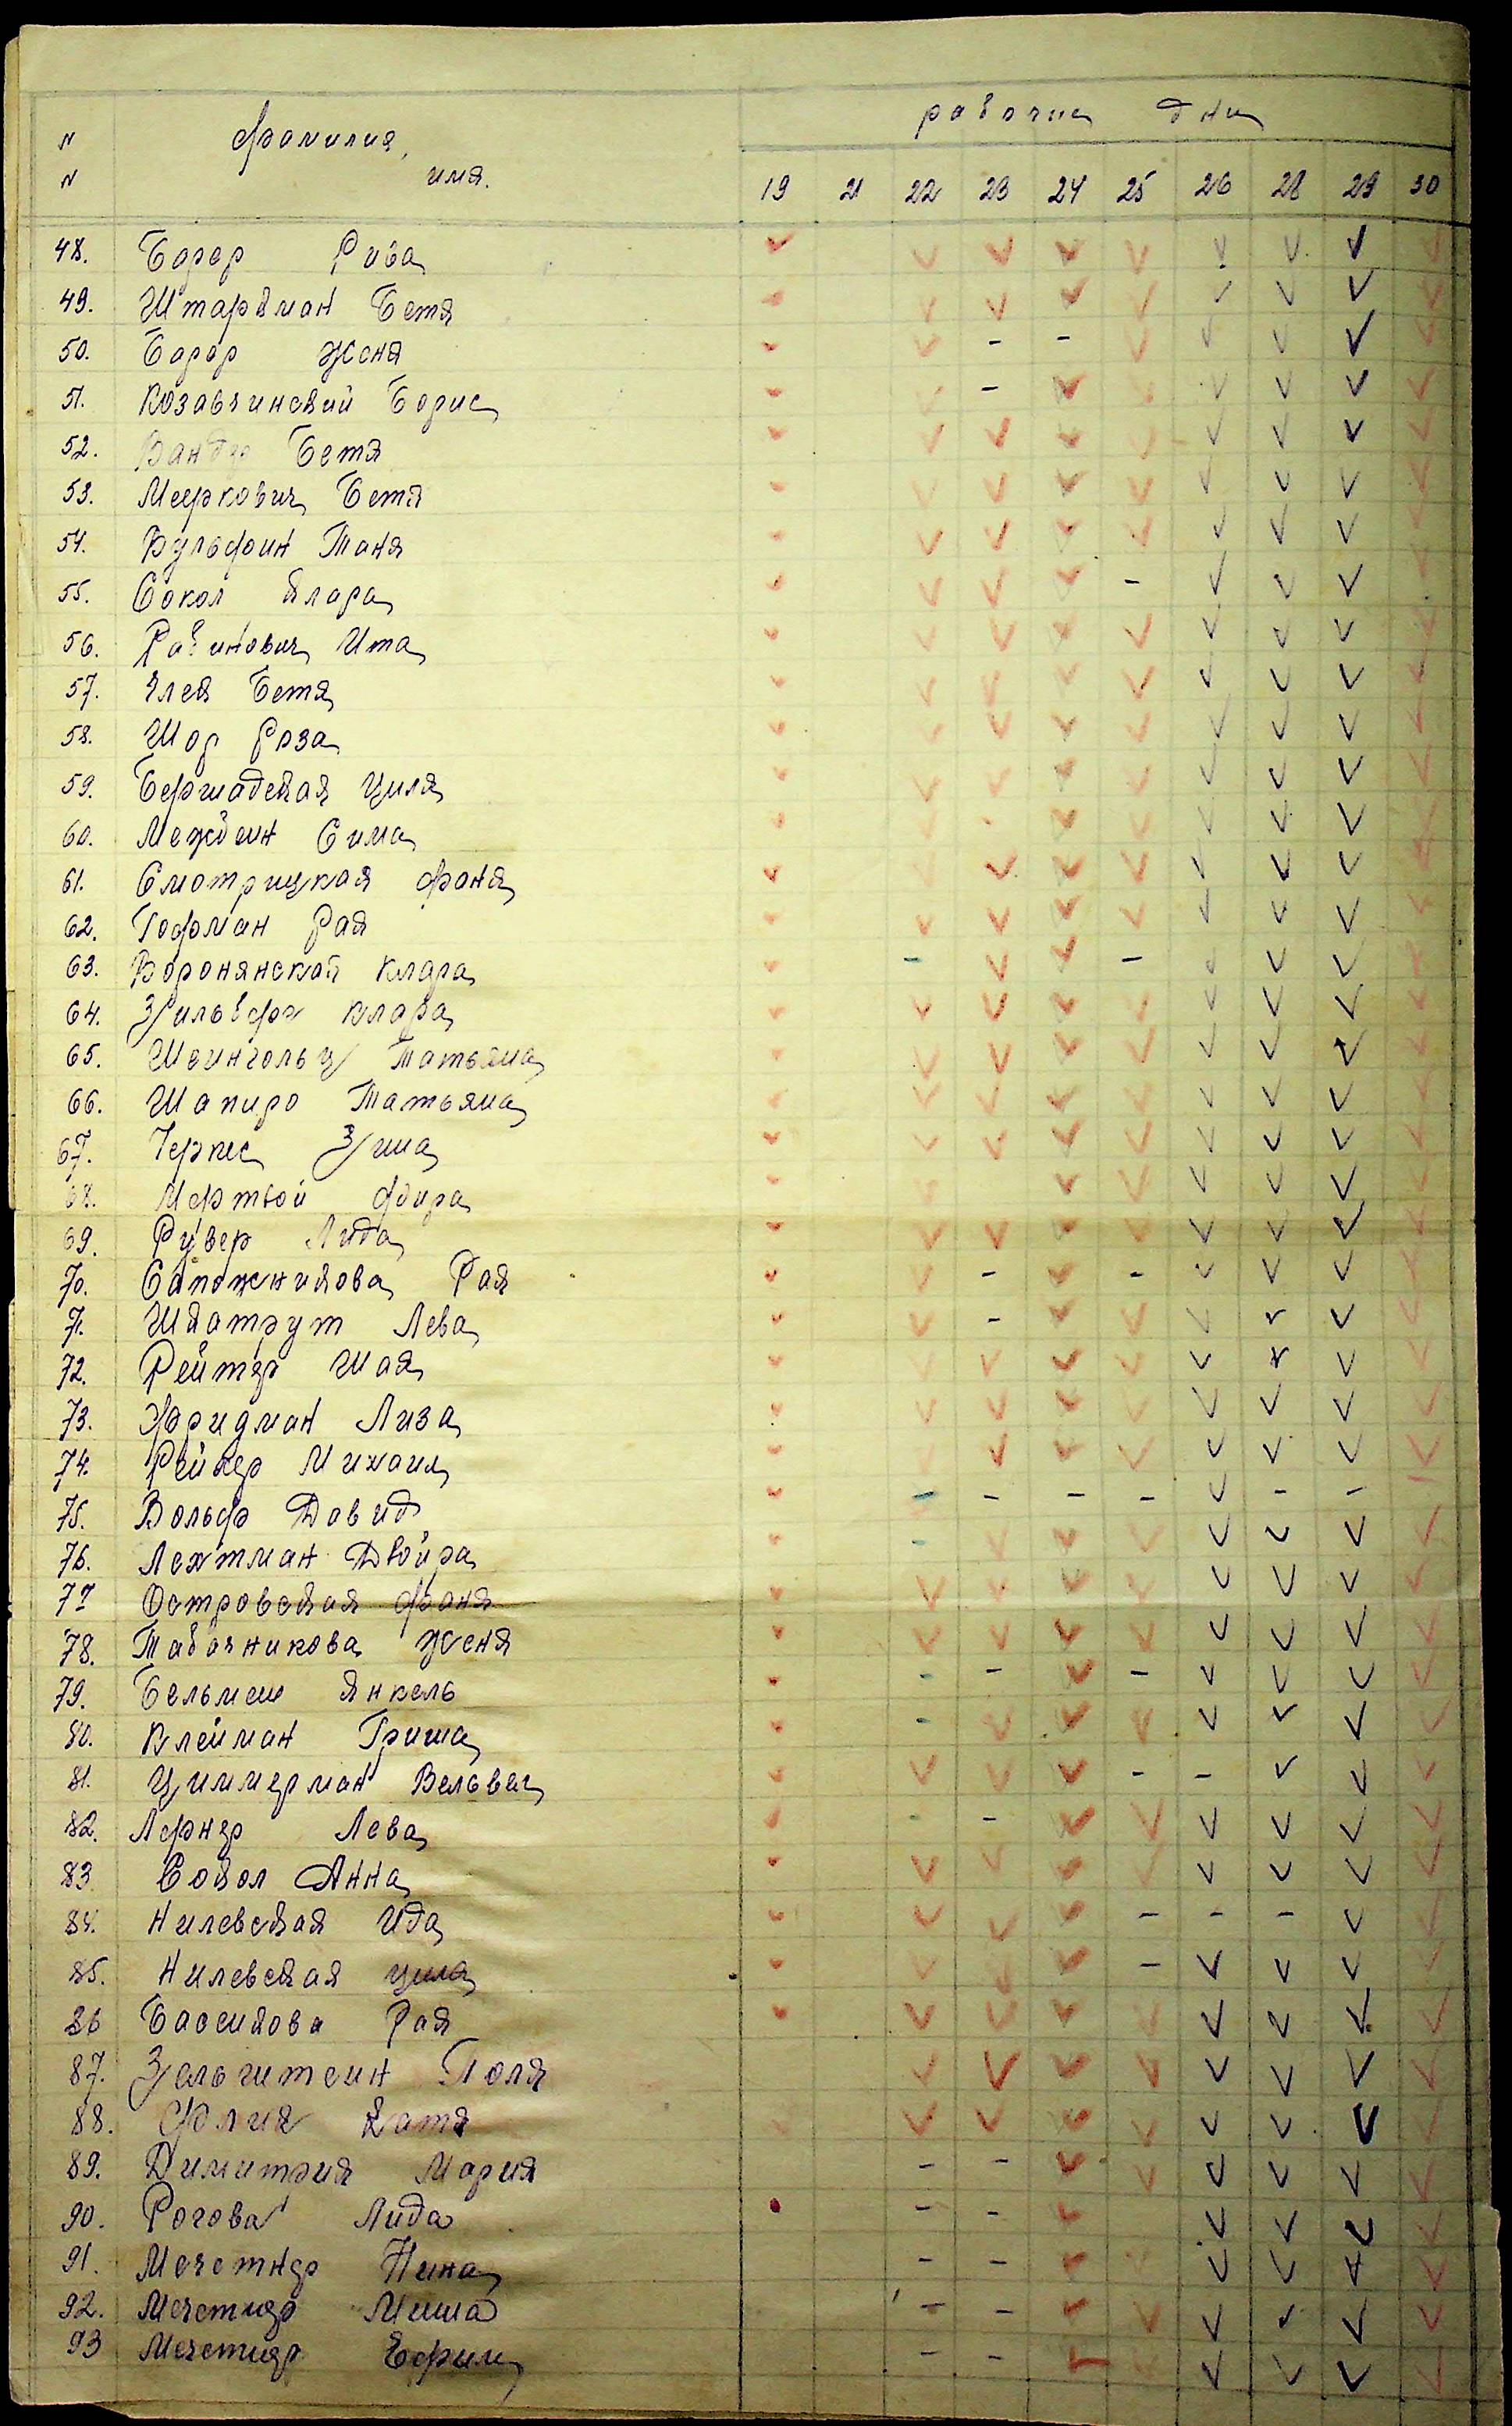 N Фамилия, рабочие дни
N имя. 19 21 22 23 24 25 26 28 29 30
48. Борер Рива V V V V V V V V V
49. Штаркман Бетя V V V V V V V V
50. Борер Женя V V - - V V V V V
51. Козавчинский Борис V V - V V V V V V
52. Бетя V V V V V V V V V
53. Меерович Бетя V V V V V V V V V
54. Вульфин Таня V V V V V V V V
55. Сокол Клара V V V V - V V V
56. Рабинович Ита V V V V V V V V V
57. Бетя V V V V V V V V V
58. Шор Роза V V V V V V V V V
59. Бершадская Циля V V V V V V V V V
60. Сима V V V V V V V
61. Смотрицкая Фаня V V V V V V V V
62. Гофман Рая V V V V V V V V V
63. Воронянская Клара V - V V - V V V V
64. Зильберг Клара V V V V V V V V V
65. Татьяна V V V V V V V V V
66. Шапиро Татьяна V V V V V V V V V
67. Черкес Зина V V V V V V V V V
68. Мертвой V V V V V V V V
69. Рувер Лида V V V V V V V V V
70. Сапожникова Рая V V - V - V V V V
71. Шкатрут Лева V V - V V V V V V
72. Рейтер Шая V V V V V V V V V
73. Фридман Лиза V V V V V V V V V
74. Рейдер Михаил V V V V V V V V
75. Вольф Давид V - - - - V - - -
76. Лехтман Двойра V - V V V V V V V
77 Островская Фаня V V V V V V V V V
78. Табачникова Женя V V V V V V V V V
79. Бельмеш Янкель V - - V - V V V V
80. Клейман Гриша V - V V V V V V V
81. Циммерман Вельвел V V V V - - V V V
82. Лернер Лева V - - V V V V V V
83 Сокол Анна V V V V V V V V V
84. Нилевская Ида V V V V - - - V V
85. Нилевская Циля V V V V - V V V V
86 Бассикова Рая V V V V V V V V V
87. Зальштеин Поля V V V V V V V V
88. Катя V V V V V V V V
89. Димитрия Мария - - V V V V V V
90. Рогова Лида - - V V V V V
91. Мечетнер Нина - - V V V V V
92. Мечетнер Миша - - V V V V V V
93 Мечетнер Ефим - - V V V V V